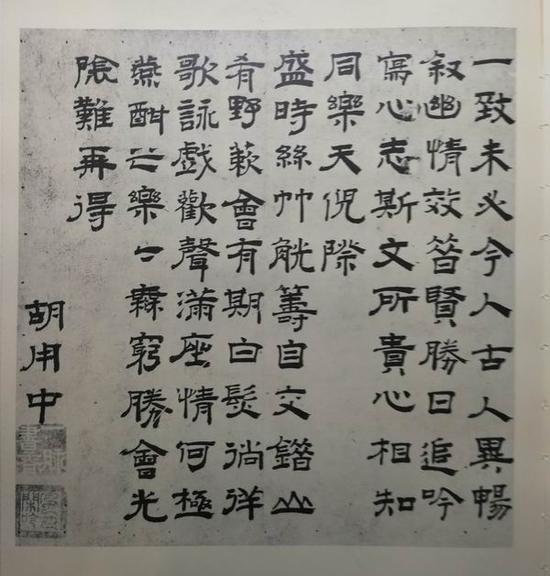 一致未必今人古人異暢
叙幽情效昔賢勝日追吟
寫心志斯文所貴心相知
同樂天倪際
盛時絲竹觥籌自交錯山
肴野蔌會有期白髮徜徉
歌詠戲歡聲滿座情何極
燕酣之樂々無窮勝會光
陰難再得
胡用中